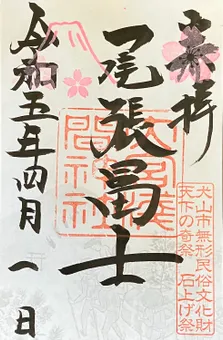 奉拝
尾張冨士
大宮浅間神社
令和五年四月一日
犬山市無形民俗文化財
天下の奇祭 石上げ祭